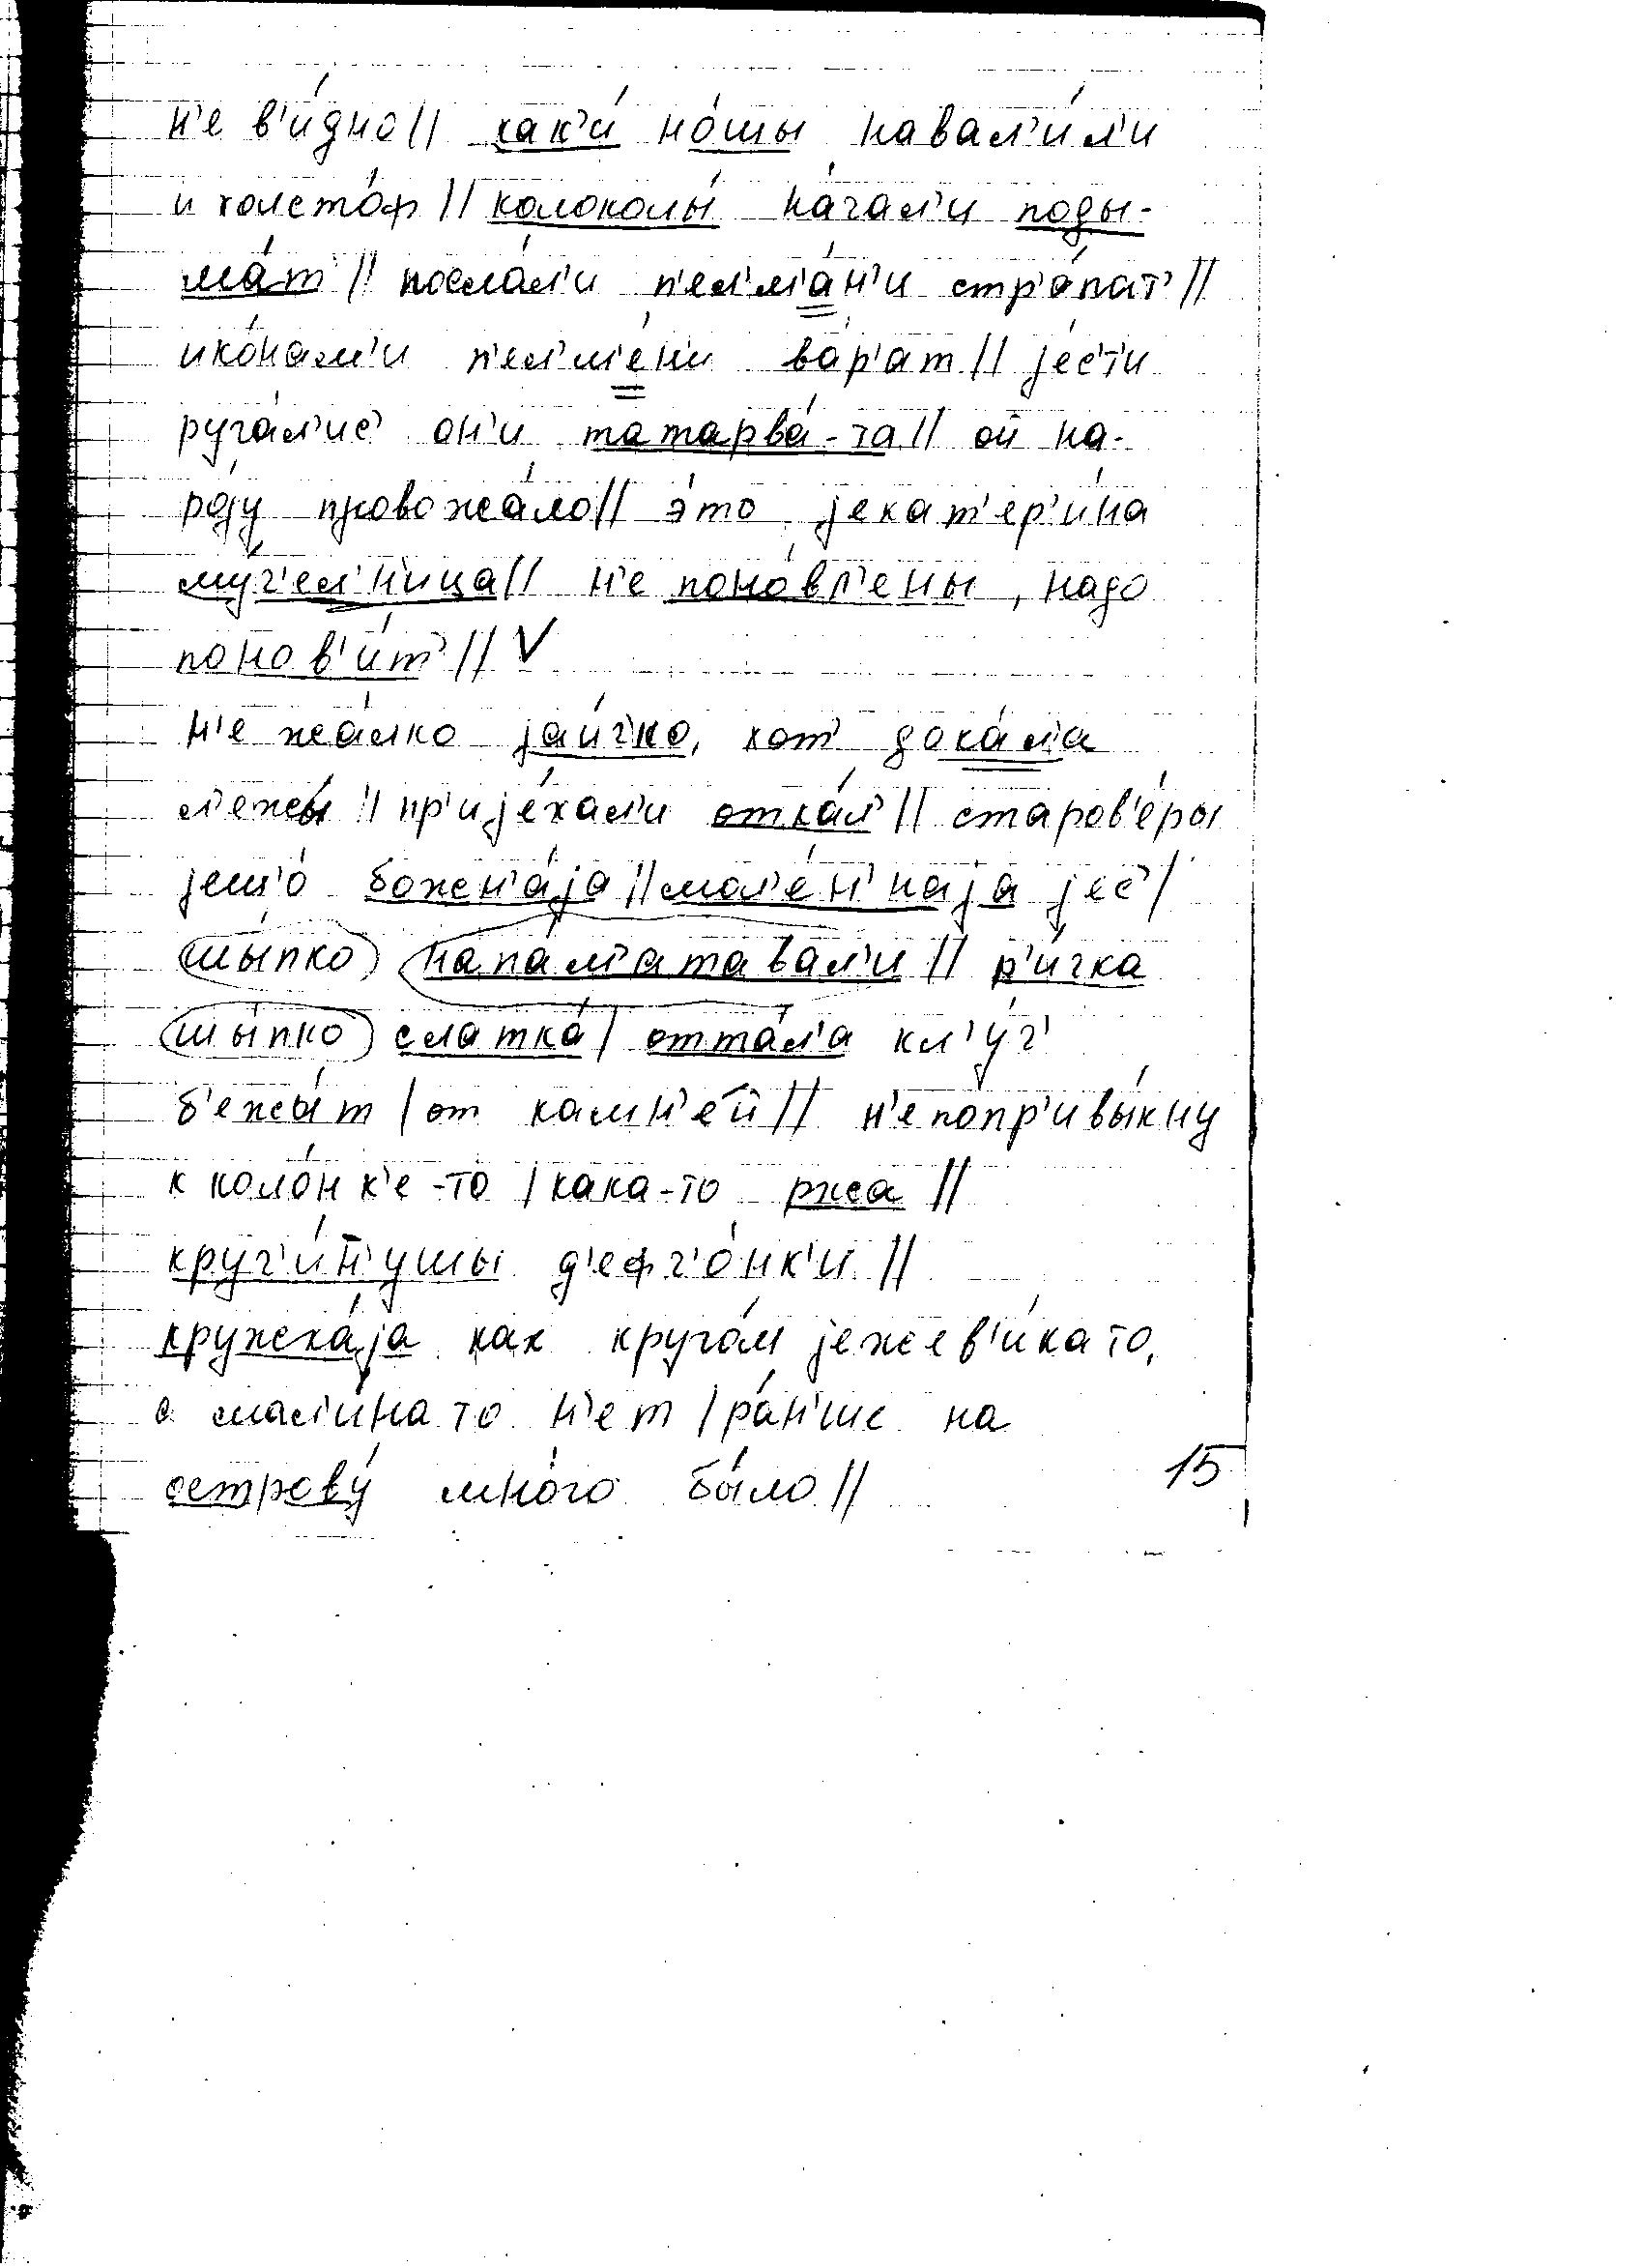 н'е в'и́дно // как'и́ но́шы навал'и́л'и
и холсто́ф // колоколы́ на́чал'и поды-
ма́т' // посла́л'и п'ел'м'а́н'и стр'а́пат' //
ико́нам'и п'ел'м'е́ни ва́р'ат // је́с'т'и
руга́л'ис' он'и татарва́-та // ой на-
ро́ју провожа́ло // э́то јекат'ер'и́на
му́ч'ел'н'ица // н'е поно́вл'ены, надо
понов'и́т' // V
н'е жа́лко јаи́чко, хот' дока́л'а
л'ежы́ // пр'ије́хал'и отка́л' // старов'е́ры
јешч'о́ божен'а́ја // мол'е́н'наја јес' /
шы́пко напа́м'атавал'и // р'и́чка
шы́пко слатка́ / отта́л'а кл'у́ч'
б'ежы́т / от камн'е́й // н'е попр'ивы́кну
к коло́нк'е-то / кака-то ржа //
круч'и́н'ушы д'ефч'о́нк'и //
кружска́ја как круго́м јежев'и́ка то,
а мал'и́на то н'ет / ра́н'ше на
острову́ мно́го бы́ло //
15